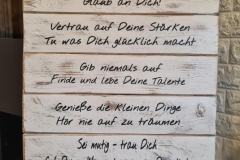 Glaub an Dich!
Vertrau auf Deine Stärken
Tu was Dich glücklich macht
Gib niemals auf
Finde und lebe Deine Talente
Genieße die kleinen Dinge
Hör nie auf zu träumen
Sei mutig - trau Dich